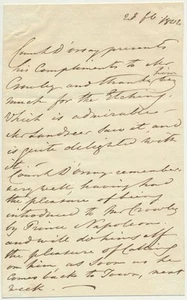 23 fb 1842
Count D'orsay presents
his Compliments to Mr
Crowly and thanks him
much for the Etching
Which is admirable
Mr Landseer saw it and
is quite delighted with
it,
Count D'orsay remembers
very well having had
the pleasure of being
introduced to Mr Crowly
by Prince Napoleon
and will do himself
the pleasure of calling
on him as soon as he
comes back to Town, next
week —